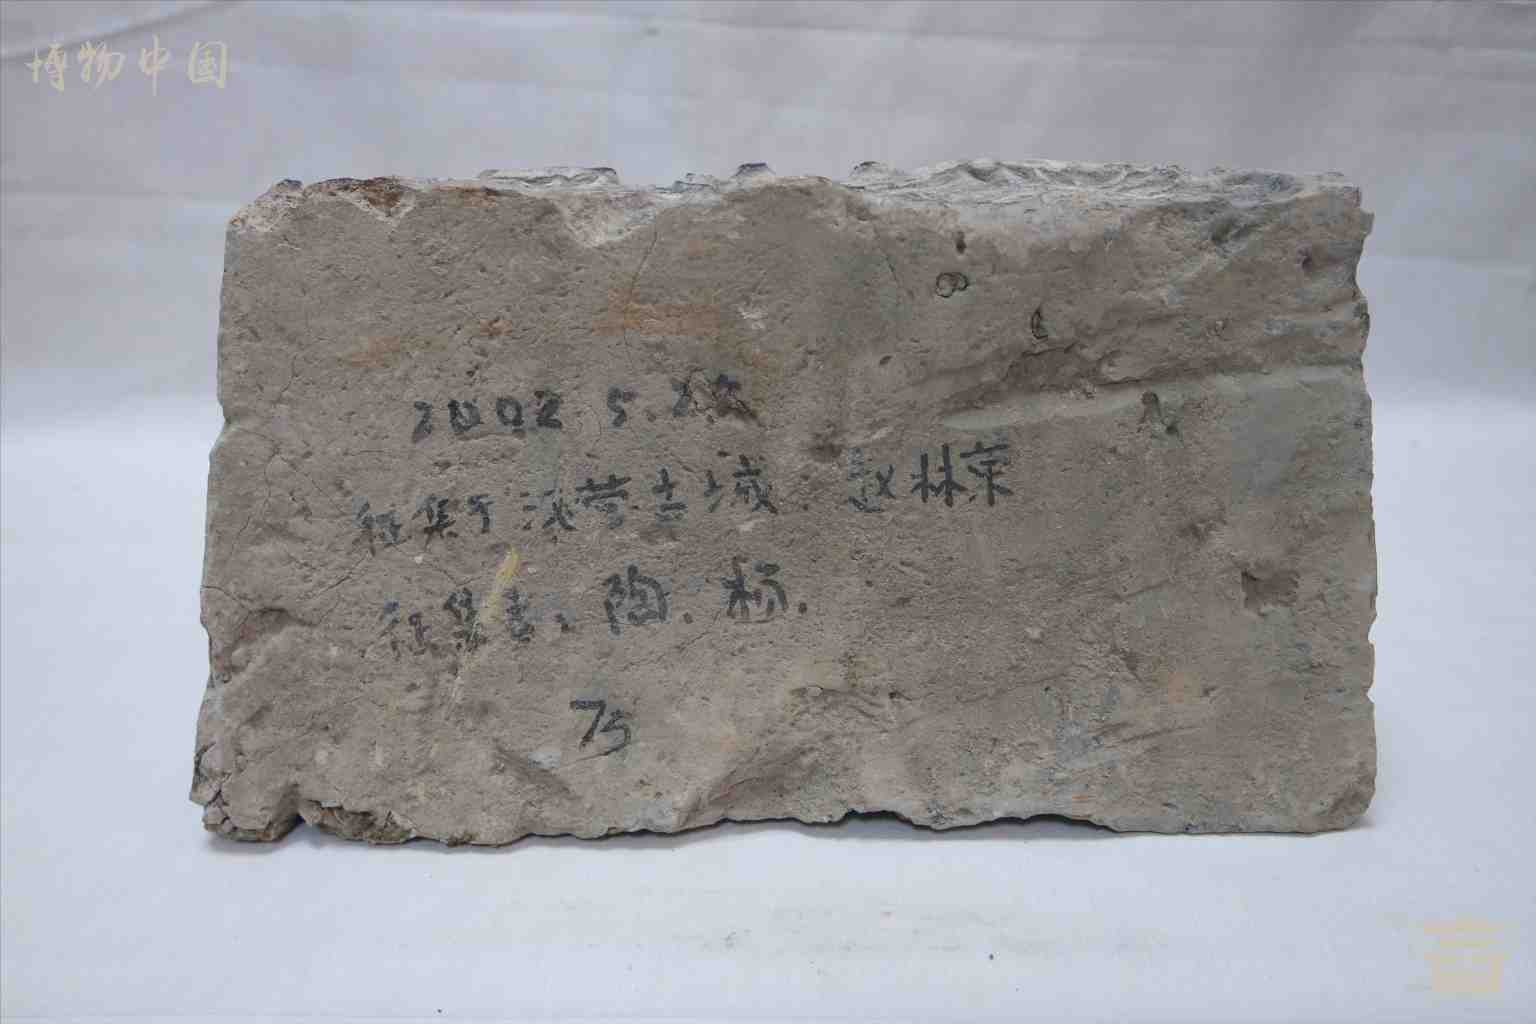 博物中国
2002.5.22
征集于汉营古城.赵林荣
征集者:陶.杨.
75